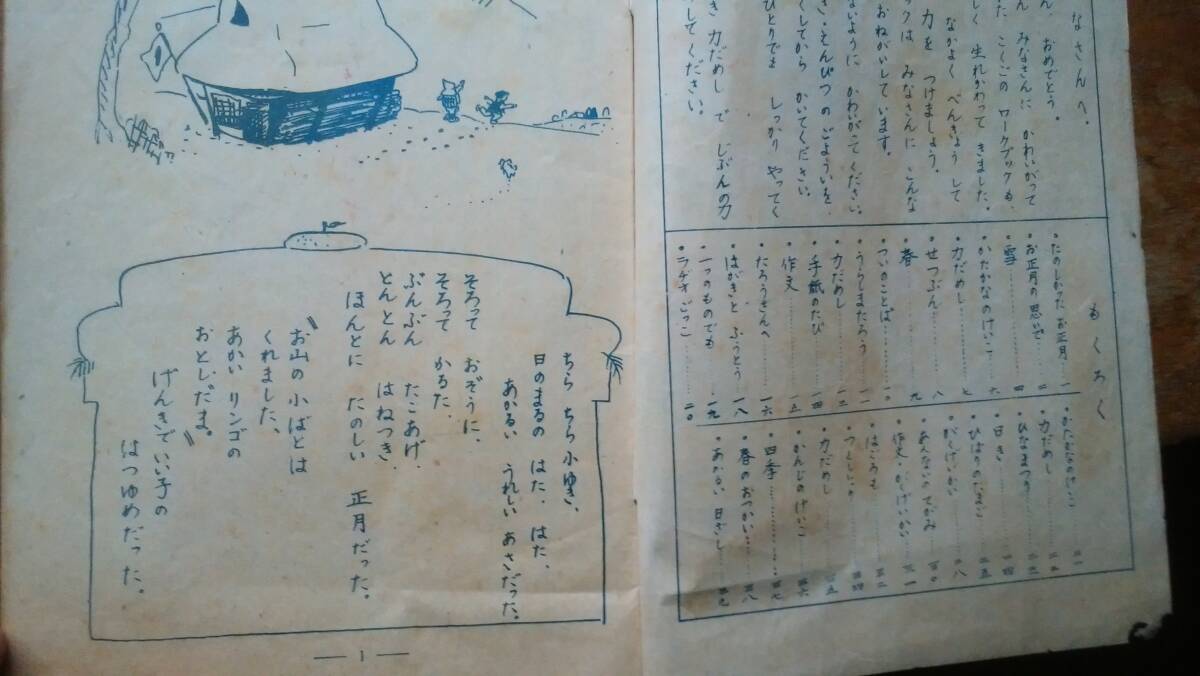 なさんへ。
ん、おめでとう。
ん みなさんに かわいがって
た こくごの ワークブックも、
しく 生れかわって きました。
なかよく べんきょう して
力を つけましょう。
ックは みなさんに こんな
おねがいしています。
ないように かわいがて ください。
き・えんぴつ の ごよういを、
くしてから かいてください。
ひとりでも しっかり やってく
き 力だめし で じぶんの力
してください。
もくろく
・たのしかった お正月……一
・お正月の 思いで……二
・雪……四
・かたかなのけいこ……六
・力だめし……七
・せつぶん……八
・春……九
・ついのことば……一〇
・うらしまたろう……一一
・力だめし……一三
・手紙のたび……一四
・作文……一五
・たろうさんへ……一六
・はがきと ふうとう……一八
・一つのものでも……一九
・ラヂオごっこ……二〇
・かたかなのけいこ……二一
・力だめし……二二
・ひなまつり……二三
・日き……二四
・がくげいかい……二八
・作文・がくげいかい……三一
・力だめし……三五
・かんじのけいこ……三六
・四季……三七
・春のおつかい……三八
・あかるい 日ざし……三九
ちら ちら 小ゆき、
日のまるの はた、はた、
あかるい うれしい あさだった。
そろって おぞうに、
そろって かるた、
ぶんぶん たこあげ、
とんとん はねつき、
ほんとに たのしい 正月だった。
〝お山の 小ばとは
くれました、
あかい リンゴの
おとしだま。〟
げんきで いい子の
はつゆめだった。
— 1 —